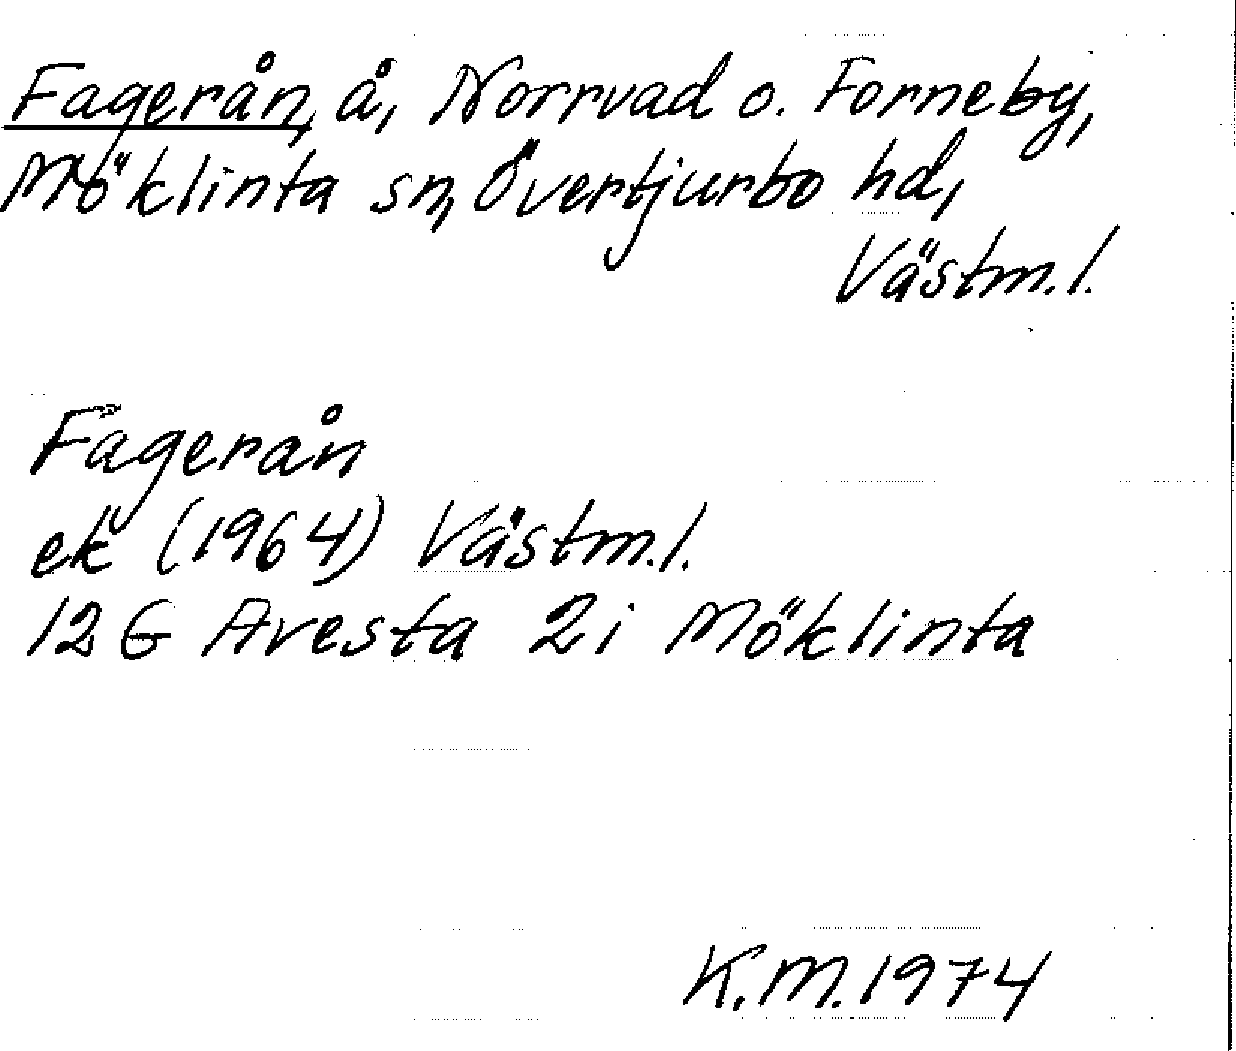 Fagerån, å, Norrvad o. Forneby,
Möklinta sn, Övertjurbo hd,
Västm.l.
Fagerån
ek (1964) Västm.l.
12 G Avesta 2i Möklinta
K.M. 1974